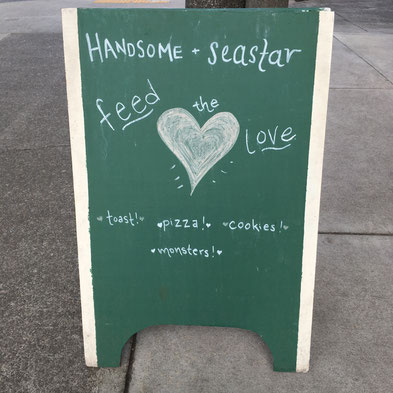 HANDSOME + seastar
feed the love
toast! pizza! cookies!
monsters!